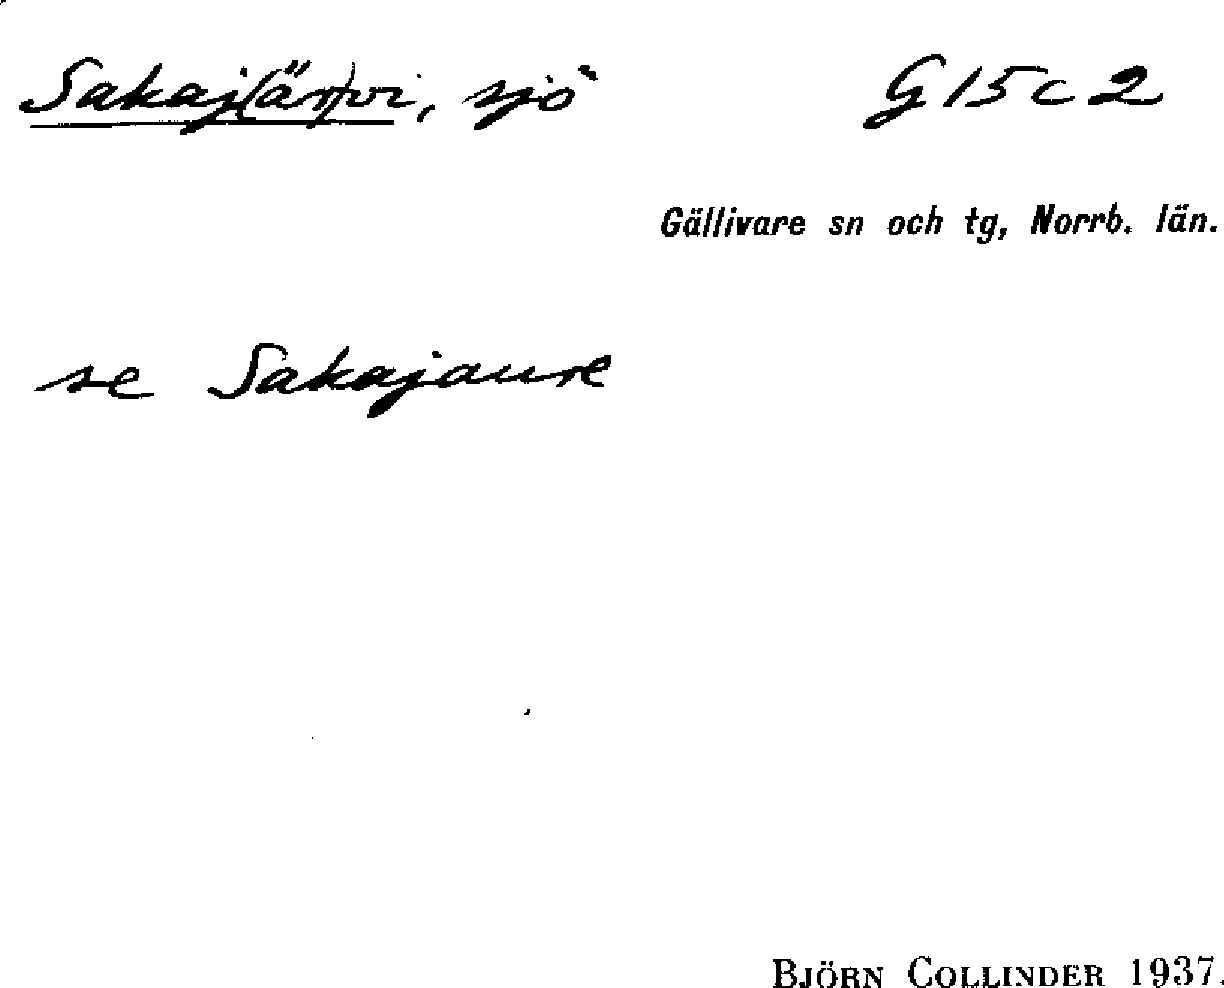 Sakaj(är)vi, sjö
G 15 c 2
Gällivare sn och tg, Norrb. län.
se Sakajaure
BJÖRN COLLINDER 1937.